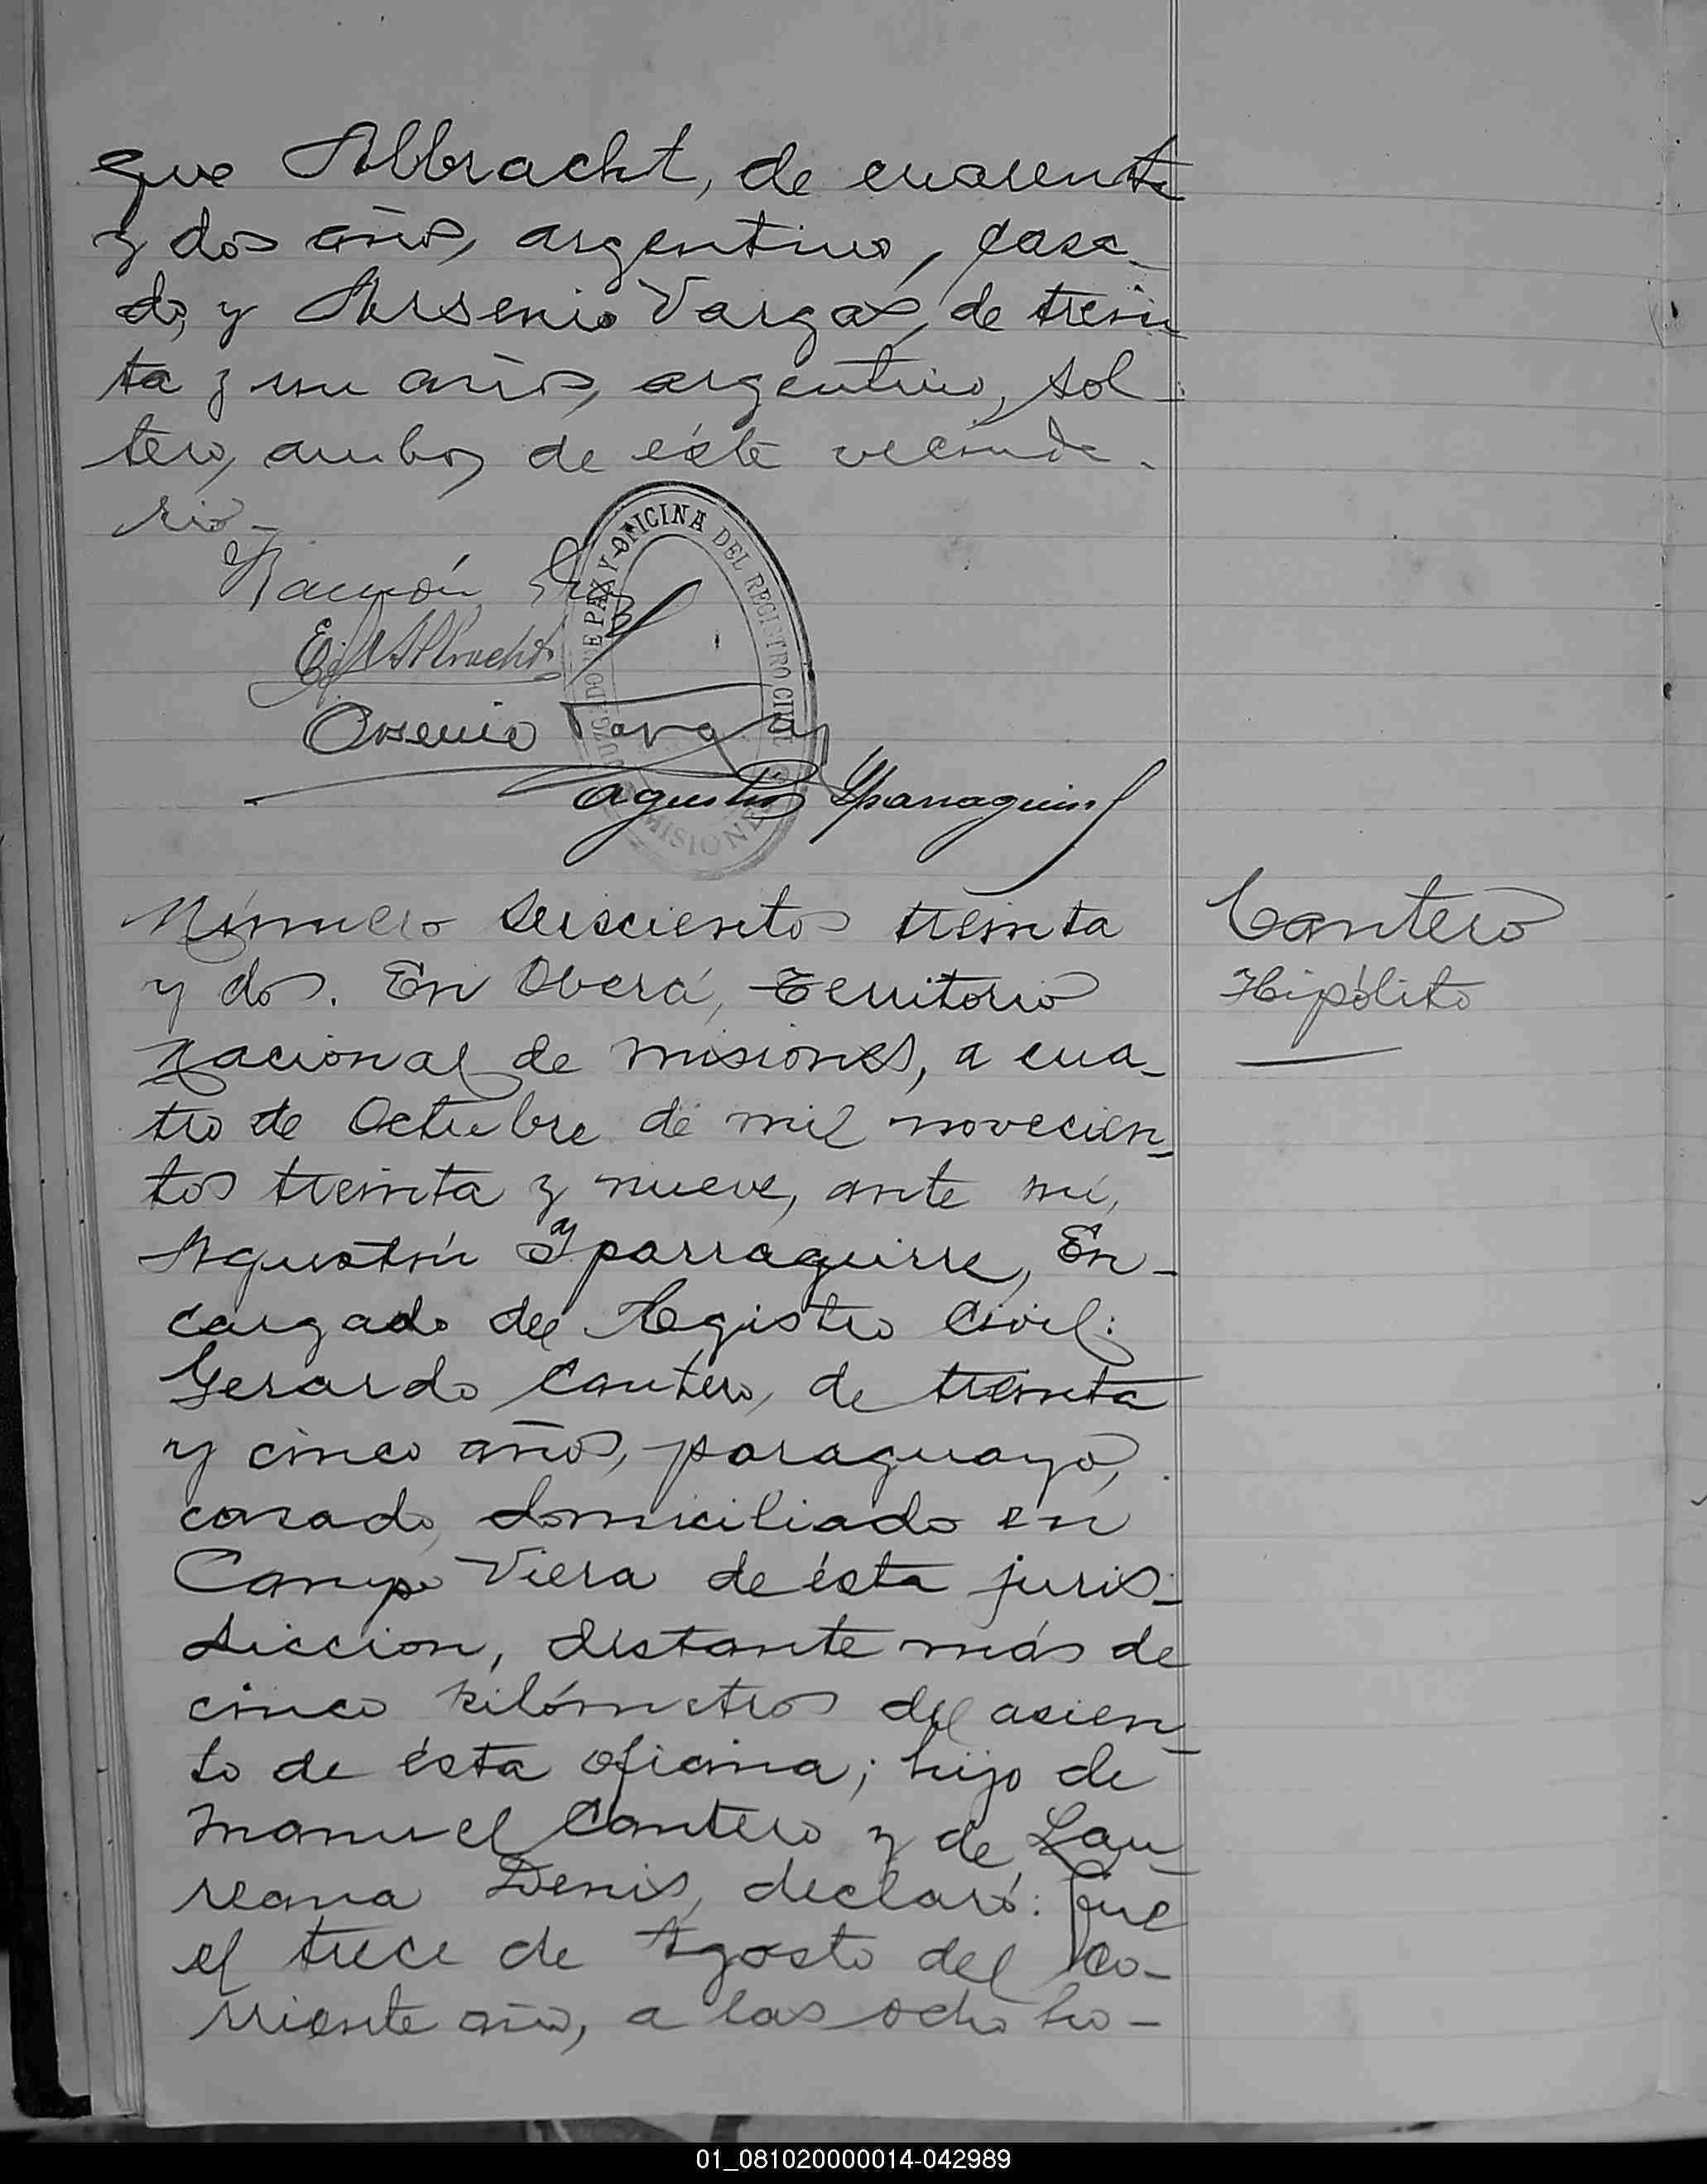 que Albracht, de cuarenta
y dos años, argentino, casa-
do, y Arsenio Vargas, de trein
ta y un años, argentino, sol-
tero, ambos de éste vecinda-
rio-
JUZGADO DE PAZ Y OFICINA DEL REGISTRO CIVIL
MISIONES
Ramón
Albracht
Arsenio Vargas
Agustin Yparraguirre
Número seiscientos treinta
y dos. En Oberá, Territorio
Nacional de Misiones, a cua-
tro de Octubre de mil novecien-
tos treinta y nueve, ante mí,
Agustín Yparraguirre, En-
cargado del Registro Civil:
Gerardo Cantero, de treinta
y cinco años, paraguayo,
casado, domiciliado en
Campo Viera de ésta juris-
diccion, distante más de
cinco kilómetros del asien-
to de ésta oficina; hijo de
Manuel Cantero y de Lau-
reana Denis, declaró: Que
el trece de Agosto del co-
rriente año, a las ocho ho-
Cantero
Hipólito
01_081020000014-042989